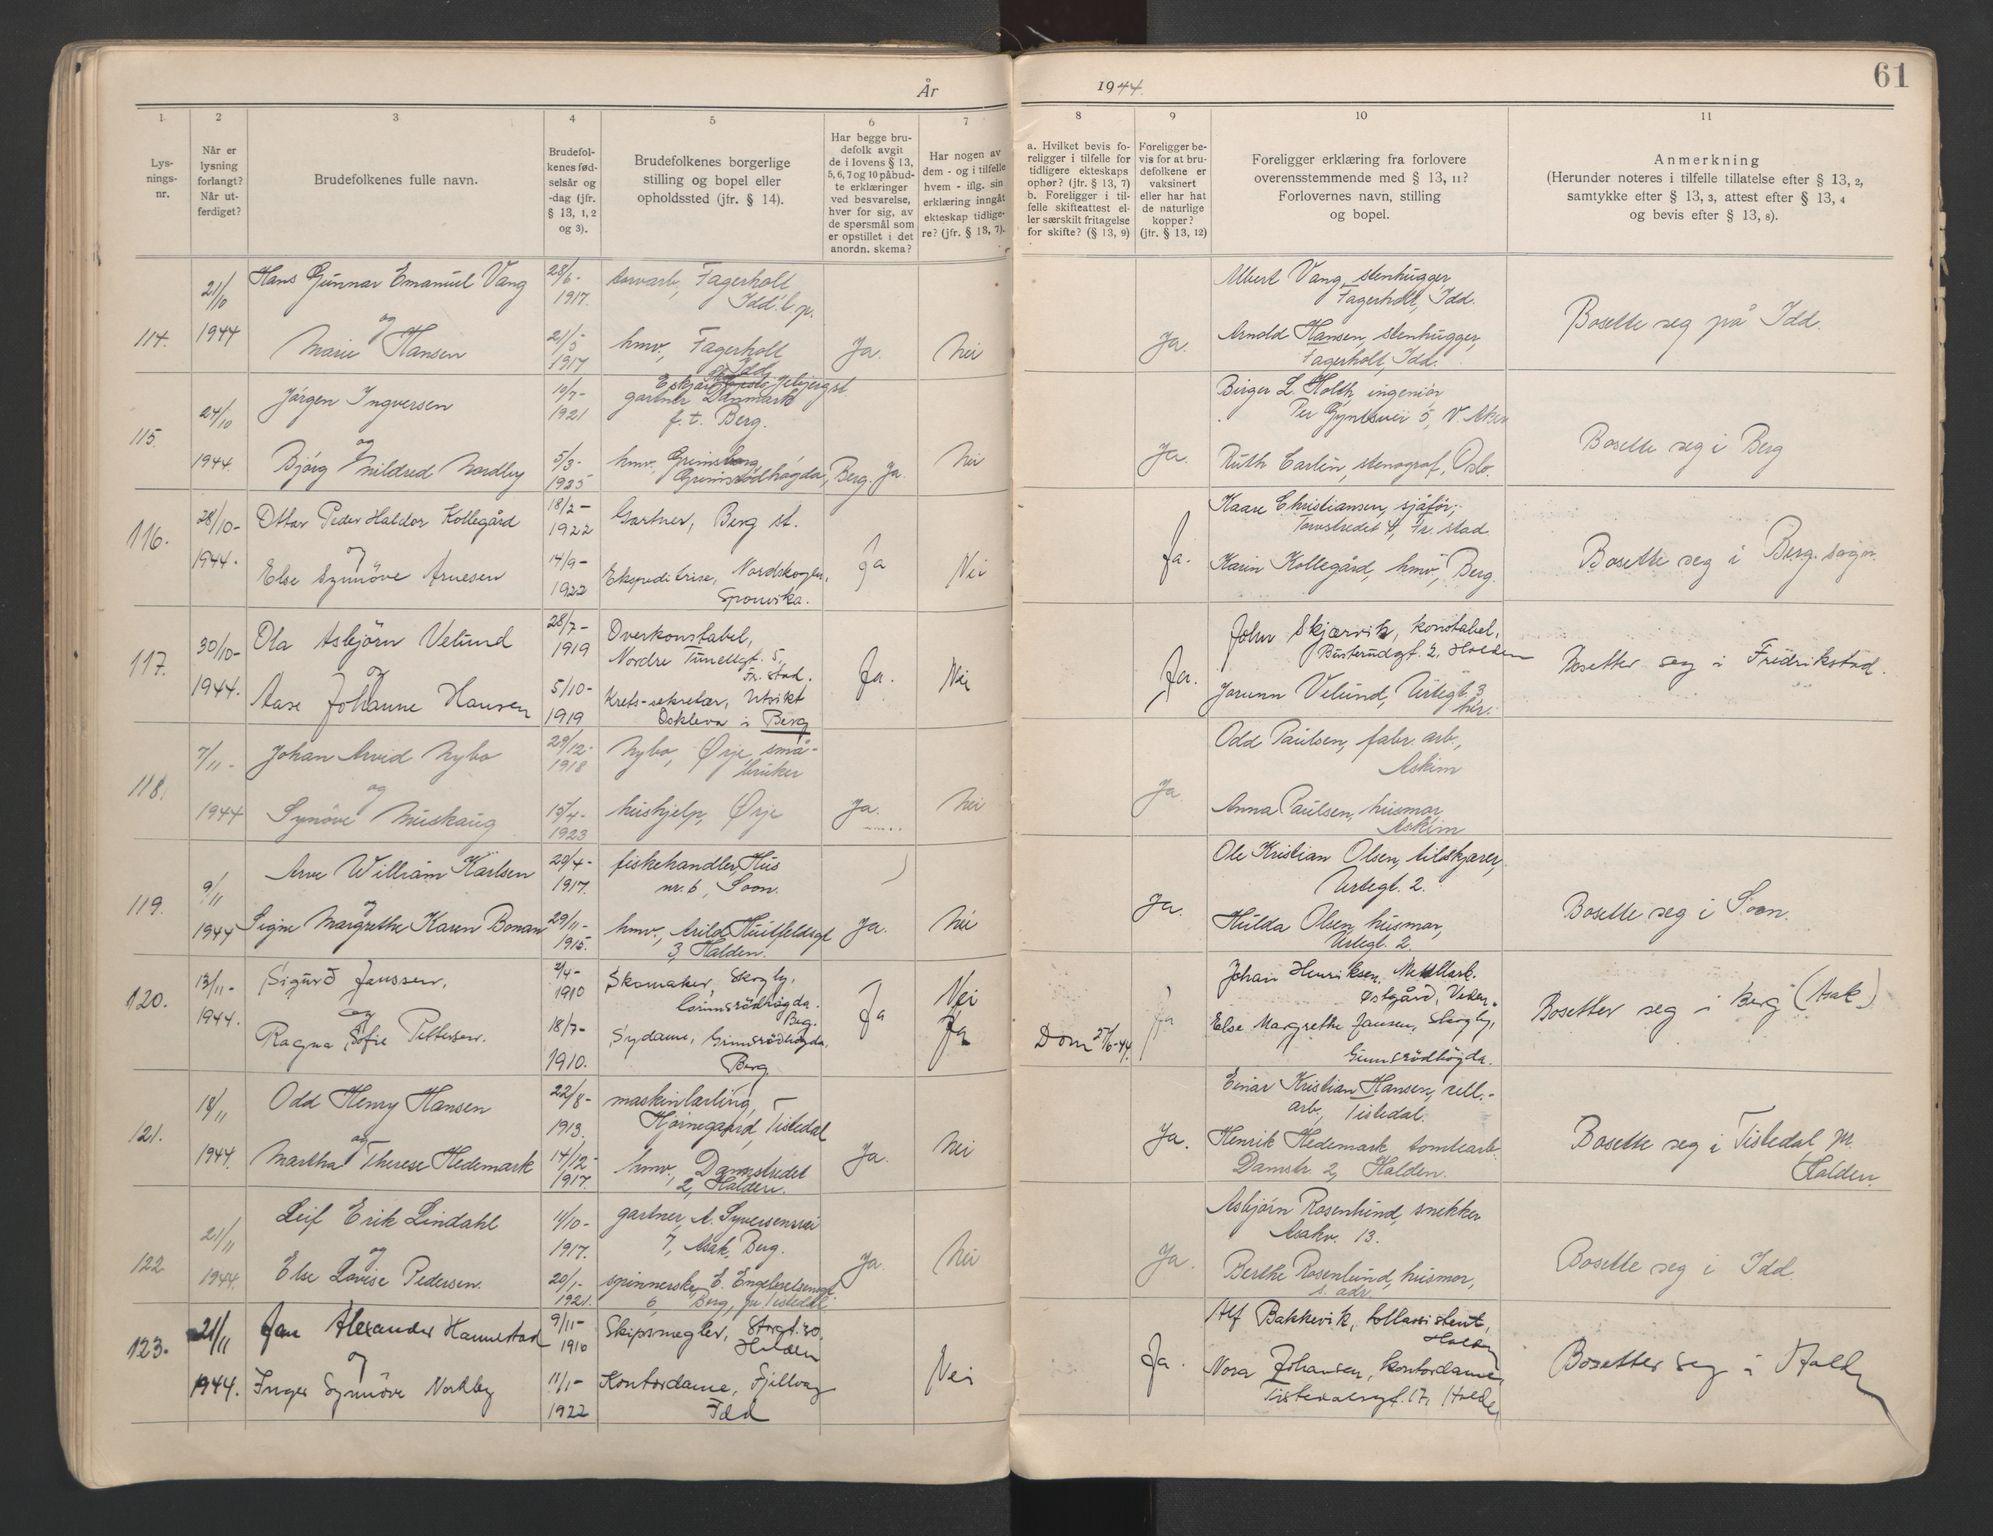 År
1944.
61
1
2
3
4
5
6
7
8
9
10
11
Lys-
nings-
nr.
Når er
lysning
forlangt?
Når ut-
ferdiget?
Brudefolkenes fulle navn.
Brudefol-
kenes fød-
selsår og
-dag (jfr.
§ 13, 1, 2
og 3).
Brudefolkenes borgerlige
stilling og bopel eller
opholdssted (jfr. § 14).
Har begge bru-
defolk avgit
de i lovens § 13,
5, 6, 7 og 10 påbud-
te erklæringer
ved besvarelse,
hver for sig, av
de spørsmål som
er opstillet i det
anordn. skema?
Har nogen av
dem - og i tilfelle
hvem - iflg. sin
erklæring inngått
ekteskap tidlige-
re? (jfr. § 13, 7).
a. Hvilket bevis fo-
religger i tilfelle for
tidligere ekteskaps
ophør? (jfr. § 13, 7)
b. Foreligger i til-
felle skifteattest el-
ler særskilt fritagelse
for skifte? (§ 13, 9)
Foreligger be-
vis for at bru-
defolkene er
vaksinert
eller har hat
de naturlige
kopper?
(jfr. § 13, 12)
Foreligger erklæring fra forlovere
overensstemmende med § 13, 11?
Forlovernes navn, stilling
og bopel.
Anmerkning
(Herunder noteres i tilfelle tillatelse efter § 13, 2,
samtykke efter § 13, 3, attest efter § 13, 4
og bevis efter § 13, 8).
114.
21/10
1944
Hans Gunnar Emanuel Vang
og
Marie Hansen
28/6
1917.
21/5
1917
torvarb, Fagerholt
Idd l. p.
hmv, Fagerholt
Idd
Ja.
Nei
Ja.
Albert Vang, stenhugger,
Fagerholt, Idd.
Arnold Hansen, stenhugger,
Fagerholt, Idd.
Bosette seg på Idd.
115.
24/10
1944.
Jørgen Ingversen
og
Bjørg Mildred Nordby
19/7-
1921
5/3-
1925
gartner Danmark
f. t. Berg.
hmv, Grimsrødhøgda, Berg.
Ja.
Nei
Ja.
Birger L. Holth, ingeniør
Per Gyntsvei 5, V. Aker
Ruth Carlin, stenograf, Oslo.
Bosette seg i Berg
116.
28/10-
1944.
Ottar Peder Haldor Kollegård
og
Else Synnöve Arnesen
18/2-
1922
14/9-
1922
Gartner, Berg st.
Ekspeditrise, Nordskogen,
Sponvika.
Ja
Nei
Ja.
Kaare Christiansen, sjåför,
Torvstredet 4, Fr. stad
Karin Kollegård, hmv, Berg.
Bosette seg i Berg. sogn.
117.
30/10-
1944.
Ola Asbjörn Velund
og
Aase Johanne Hansen
28/7-
1919
5/10-
1919
Overkonstabel,
Nordre Tunellgt. 5,
Fr. stad.
Krets-sekretær, Utsikt
Oskleva i Berg
Ja.
Nei
Ja.
John Skjærvik, konstabel,
Busterudgt. 2, Halden
Jorunn Velund, Urtegt. 3
her.
Bosetter seg i Fredrikstad.
118.
7/11-
1944
Johan Arvid Nybo
og
Synöve Huiskaug
29/12-
1918
15/4-
1923
Nybo, Ørje, små-
bruker
hushjelp, Ørje
Ja.
Nei
Ja
Odd Paulsen, fabr. arb.,
Askim
Anna Paulsen, husmor,
Askim
119.
9/11
1944
Arve William Karlsen
og
Signe Margrethe Karen Boman
20/4-
1917.
29/11-
1915.
fiskehandler, Hus
nr. 6, Soon.
hmv, Arild Huitfeldsgt
3, Halden.
Ja.
Nei
Ja.
Ole Kristian Olsen, tilskjærer,
Urtegt. 2.
Hulda Olsen, husmor,
Urtegt. 2.
Bosette seg i Soon.
120.
13/11-
1944.
Sigurd Janssen,
og
Ragna Sofie Pettersen.
2/4-
1910
18/7-
1910.
Skomaker, Skogly,
Grimsrödhögda.
Berg.
Sydame, Grimsrödhögda,
Berg.
Ja
Nei
Ja
Dom 27/6-44.
Ja
Johan Henriksen, Metallarb.
Østgård, Veden.
Else Margrethe Jansen, Skogly,
Grimsrödhögda.
Bosetter seg i Berg (Asak)
121.
18/11
1944.
Odd Henry Hansen
og
Martha Therese Hedemark
22/8-
1913,
14/12-
1917.
maskinlærling,
Hjørnegaard, Tistedal
hmv, Damstredet
2, Halden.
Ja.
Nei
Ja.
Einar Kristian Hansen, cell.-
arb, Tistedal.
Henrik Hedemark tomtearb.
Damstr. 2, Halden.
Bosette seg i Tistedal pr.
Halden.
122
21/11
1944.
Leif Erik Lindahl
og
Else Lovise Pedersen.
11/10-
1917.
20/1-
1921.
gartner, A. Syversensvei
7, Asak, Berg.
spinnerske, E. Engebretsensgt
6, Berg, pr Tistedal
Ja.
Nei
Ja.
Asbjørn Rosenlund, snekker
Asakv. 13.
Berthe Rosenlund, husmor,
s. adr.
Bosette seg i Idd.
123.
21/11
1944.
Jan Alexander Hannestad
og
Inger Synnöve Norkby
9/11-
1910
11/1-
1922
Skipsmegler, Storgt. 20.
Halden
Kontordame, Fjellvag
Idd
Nei
Ja.
Alf Bakkevik, tollassistent,
Halden
Nora Johansen, kontordame,
Tistedalsgt. 17, Halden
Bosetter seg i Halden